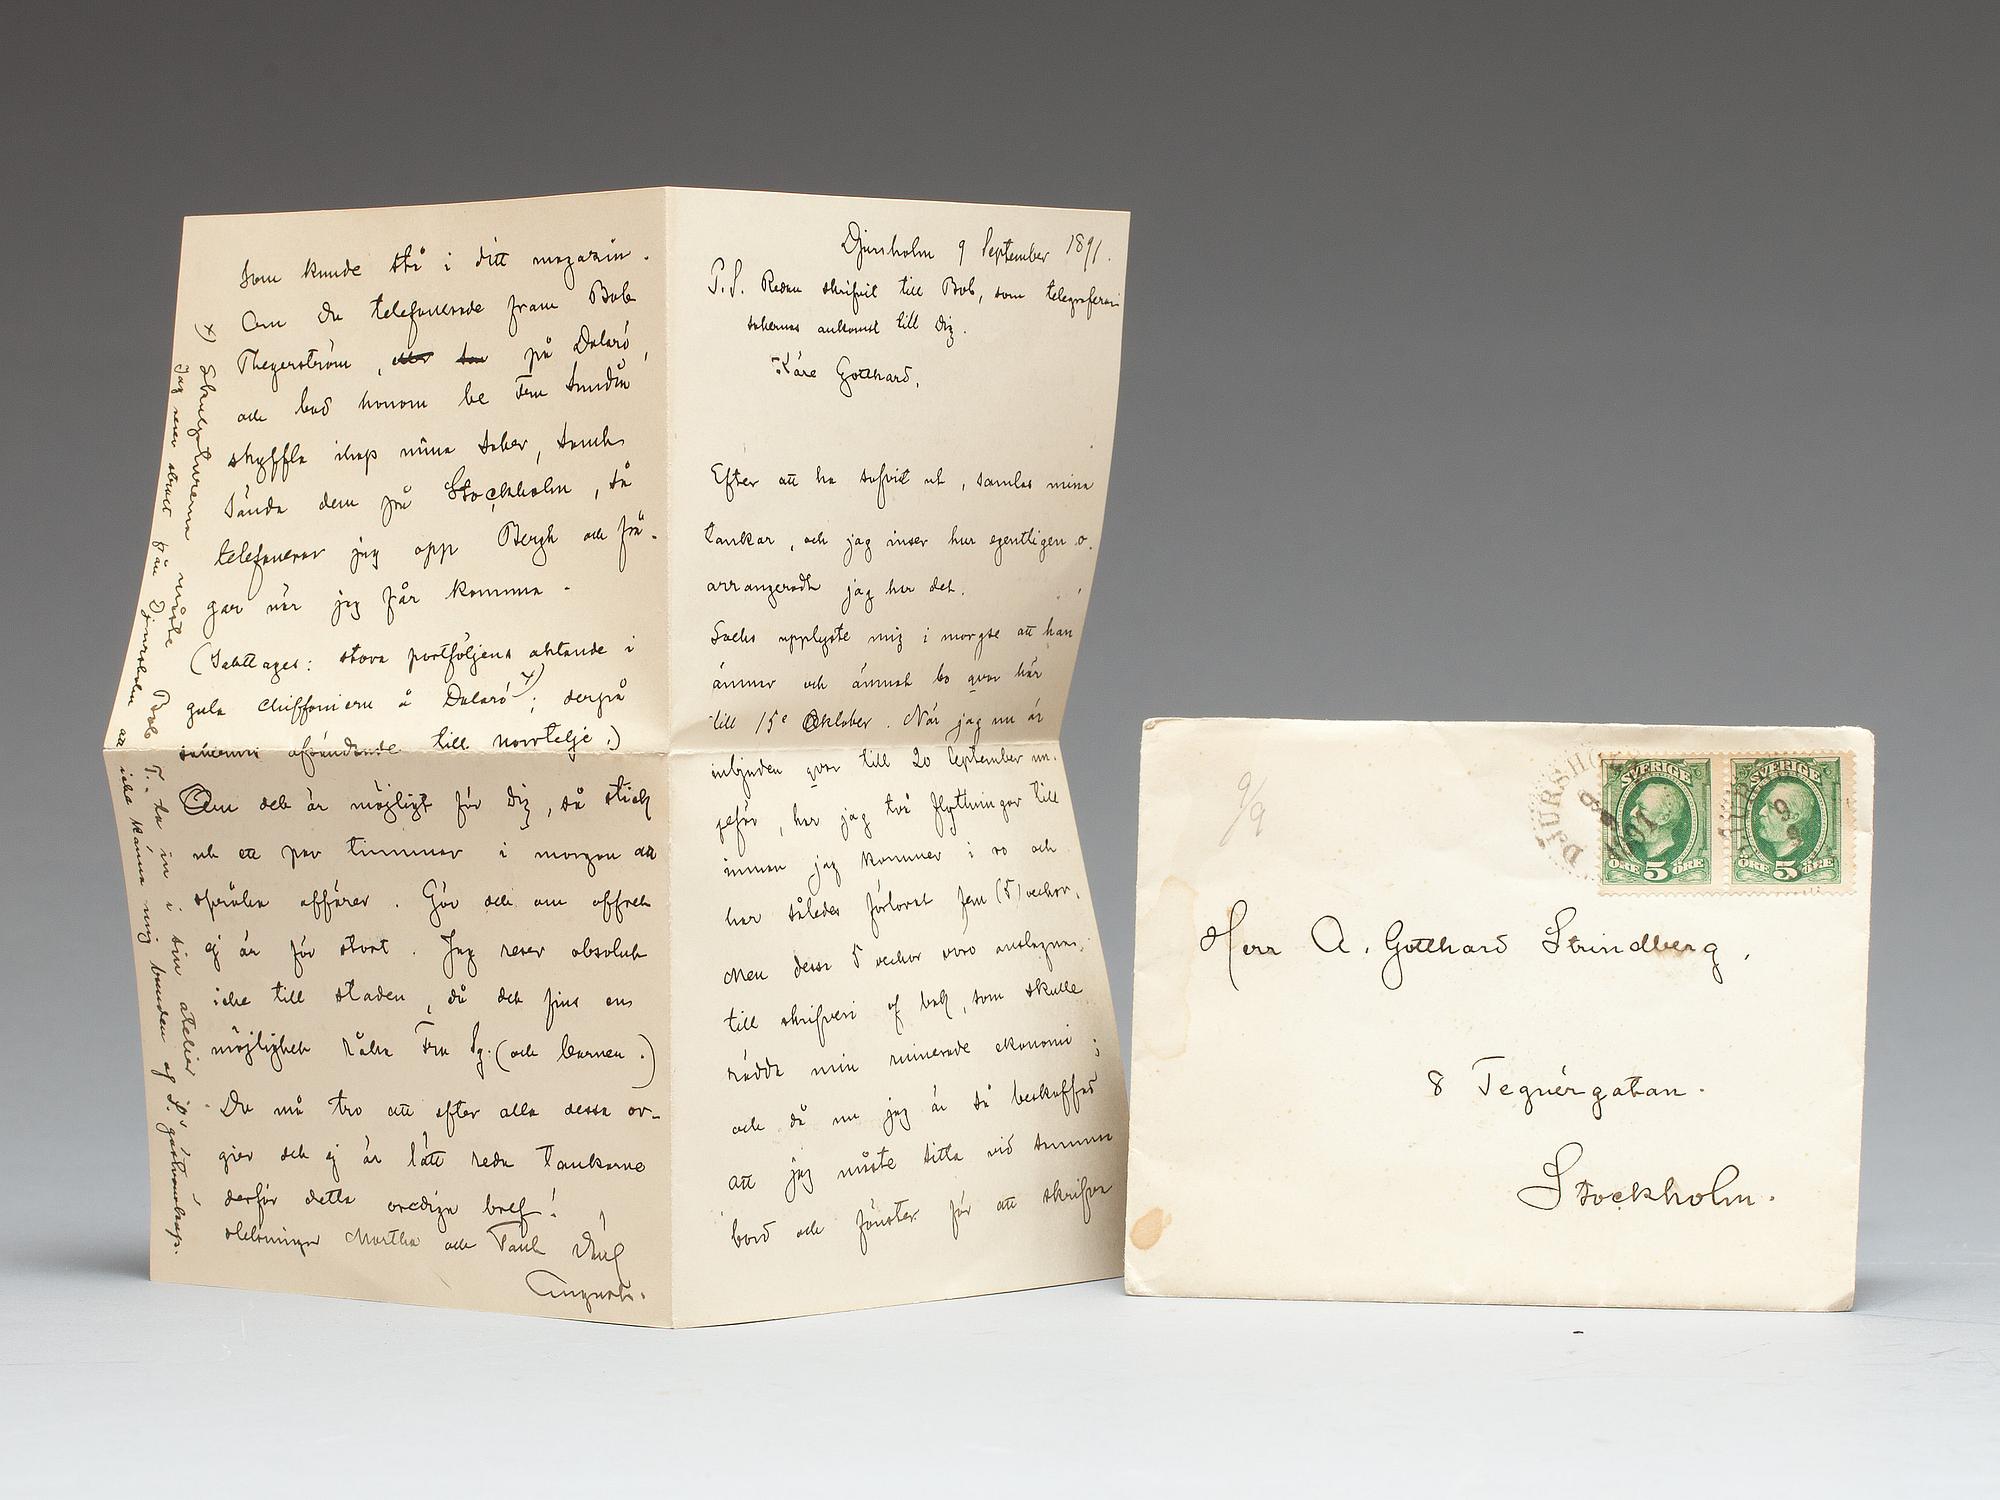 Djursholm 9 September 1891.
P.S. Redan skrifvit till Bob, som telegraferar
sakernas ankomst till Dig.
Käre Gotthard,
Efter att ha sofvit ut, samlas mina
tankar, och jag inser hur egentligen o.
arrangeradt jag har det.
Sachs upplyste mig i morgse att han
ämnar och ämnat bo qvar här
till 15e Oktober. Når jag nu är
inbjuden qvar till 20 September un.
gefär, har jag två flyttningar till
innan jag kommer i ro och
har således förlorat fem (5) veckor.
Men dessa 5 veckor voro anslagna
till skrifveri af bok, som skulle
rädda min ruinerade ekonomi;
och då nu jag är så beskaffad
att jag måste sitta vid samma
bord och fönster för att skrifva
som kunde stå i ditt magasin.
Om du telefonerade fram Bob
Thegerström, på Dalarö,
och bad honom be Fru Sundin
skyffla ihop mina saker, samt
sända dem på Stockholm, så
telefonerar jag opp Bergh och frå-
gar när jag får komma.
(Tablttages: stora portföljens aktande i
gula chiffoniern å Dalarö x); dergå
afsändande till Norrtelje.)
Om det är möjligt för Dig, så stick
ut ett par timmar i morgon att
språka affärer. Gör det om offret
ej är för stort. Jag reser absolut
icke till staden, då det fins en
möjlighet råka Fru Sg. (och barnen.)
Du må tro att efter alla dessa or-
gier det ej är lätt reda tankarne
derför detta orediga bref!
Helsningar Martha och Tant Din
August.
x) Skulpturerna måste Bob
T. ta in i sin atelier
Jag reser straxt från Djursholm att
icke känna mig bunden af S's gästvänskap.
9/9
DJURSHOLM
9 9 91
SVERIGE
ÖRE 5 ÖRE
SVERIGE
ÖRE 5 ÖRE
Herr A. Gotthard Strindberg,
8 Tegnérgatan.
Stockholm.